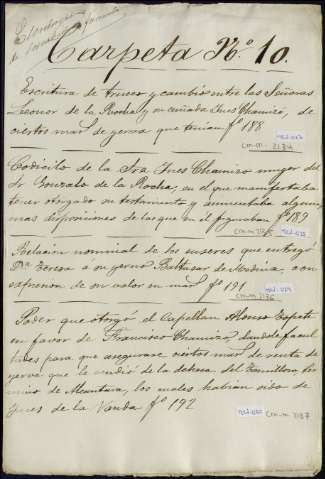 Carpeta N.º 10.
Escritura de trueco y cambio entre las Señoras
Leonor de la Rocha y su cuñada Ines Chamizo, de
ciertos mar de yerva que tenian fº 188
cm-m-2134
Codicilo de la Sra Ines Chamizo muger del
Sr Gonzalo de la Rocha, en el que manifestaba
tener otorgado su testamento y aumentaba algunas
mas disposiciones de las que en el figuraban fº 189
cm-m-2135
Relacion nominal de los enseres que entregó
Dª Teresa á su yerno Baltasar de Medina, con
espresion de su valor en mar fº 191
cm-m-2136
Poder que otorgó el Capellan Alonso Espeto
en favor de Francisco Chamizo, dandole facul
tades para que asegurase ciertos mar de renta de
yerva que le vendió de la dehesa del ter
mino de Alcantara, los cuales habian sido de
Ynes de la Vanda fº 192
cm-m-2137